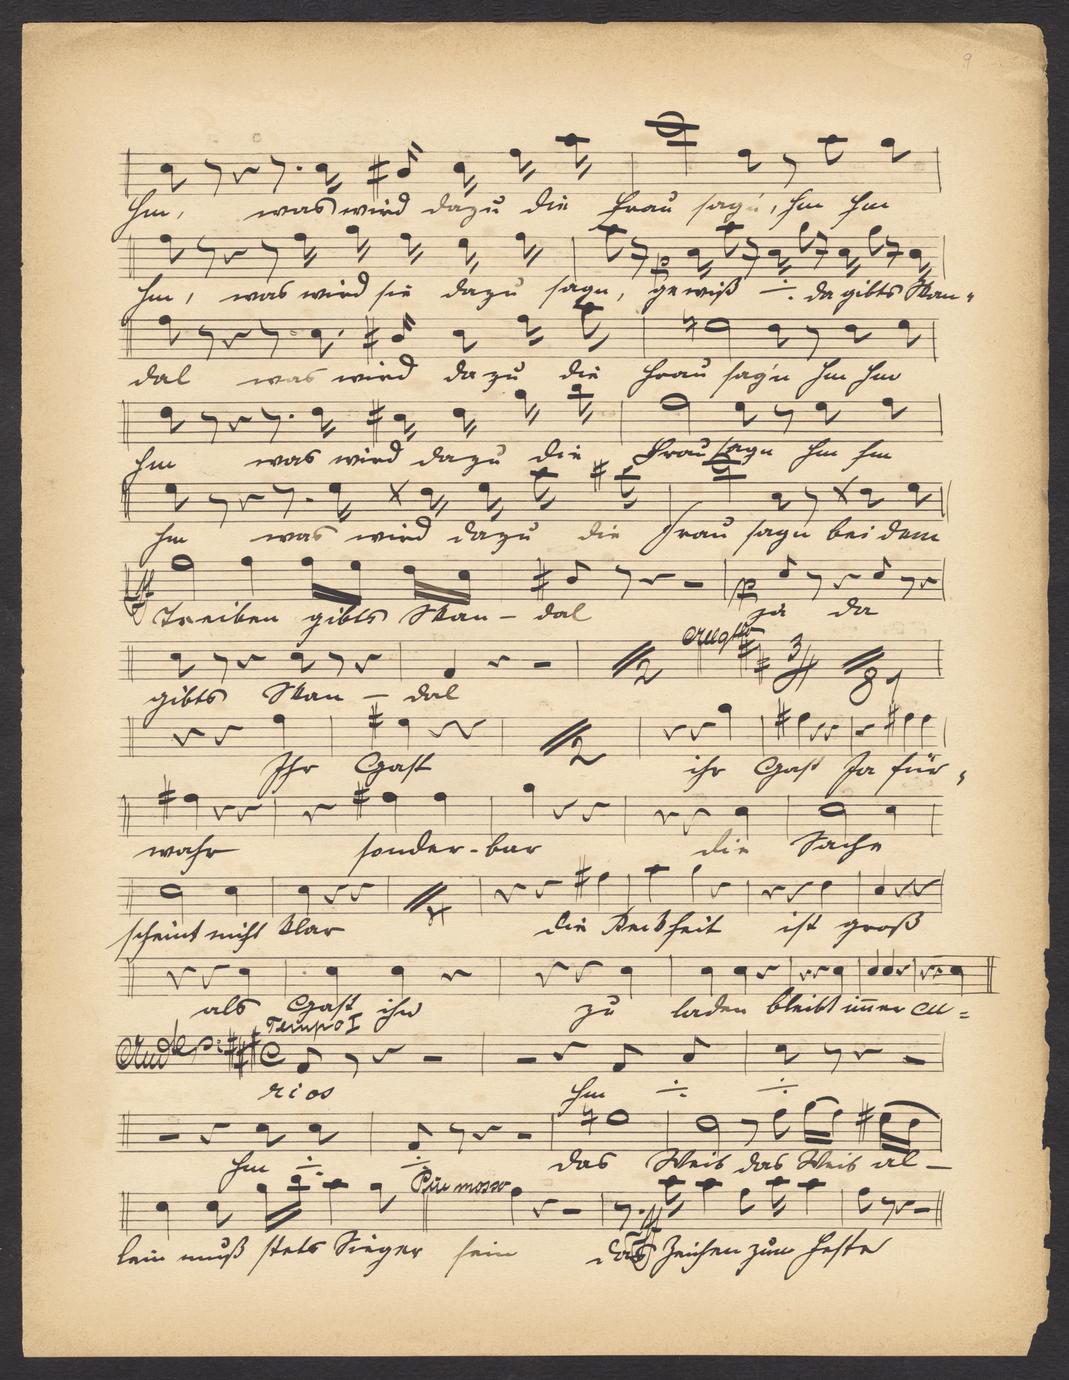 9
Hm, was wird dazu die Frau sag'n, hm hm
Hm, was wird sie dazu sagn, gewiß ÷ da gibts Skan-
dal was wird dazu die Frau sag'n hm hm
Hm was wird dazu die Frau sagn hm hm
Hm was wird dazu die Frau sagn bei dem
Treiben gibts Skan - dal ja da
Allgtto
gibts Skan - dal 2 3/4 8
2
Ihr Gast ihr Gast Ja für-
wahr sonder-bar die Sache
4
scheint nicht klar die Keckheit ist groß
als Gast ihn zu laden bleibt im̄er cu=
Tempo I
Andte C
rios hm ÷ ÷
hm ÷ ÷ das Weib das Weib al-
Piu mosso
lein muß stets Sieger sein das Zeichen zum Feste